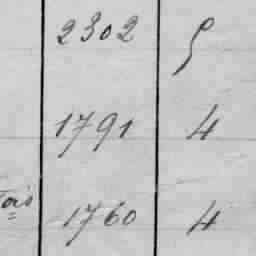 2302 5
1791 4
1760 4